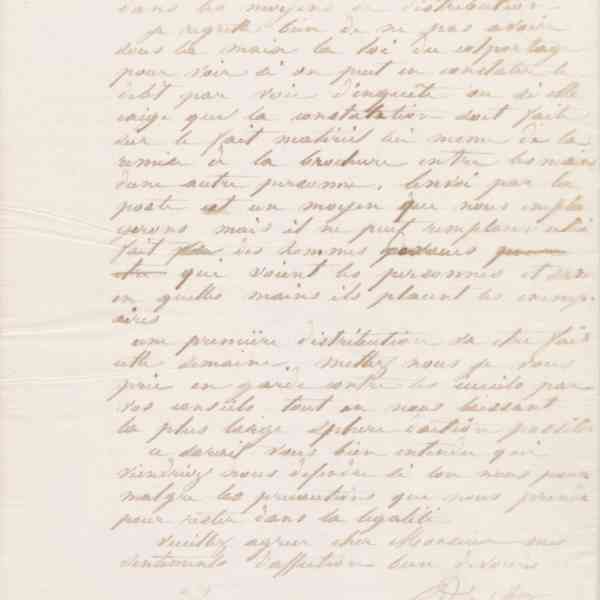 dans les moyens de distribution
je regrette bien de ne pas avoir
sous la main la loi du colportage
pour voir si on peut en constater le
délit par voie d'enquête ou si elle
exige que la constatation soit faite
sur le fait matériel lui meme de la
remise de la brochure entre les mains
d'une autre personne. l'envoi par la
poste est un moyen que nous emploi
erons mais il ne peut remplacer celui
fait par des hommes
qui voient les personnes et
en quelles mains ils placent les exempl
aires
une première distribution va etre faite
cette semaine. Mettez nous je vous
prie en garde contre les ecueils par
vos conseils tout en nous laissant
la plus large sphere d'action possible
ce serait vous bien entendu qui
viendriez nous defendre si l'on nous
malgre les precautions que nous prenons
pour rester dans la legalité
veuillez agreer cher Monsieur mes
sentiments d'affection bien devoués